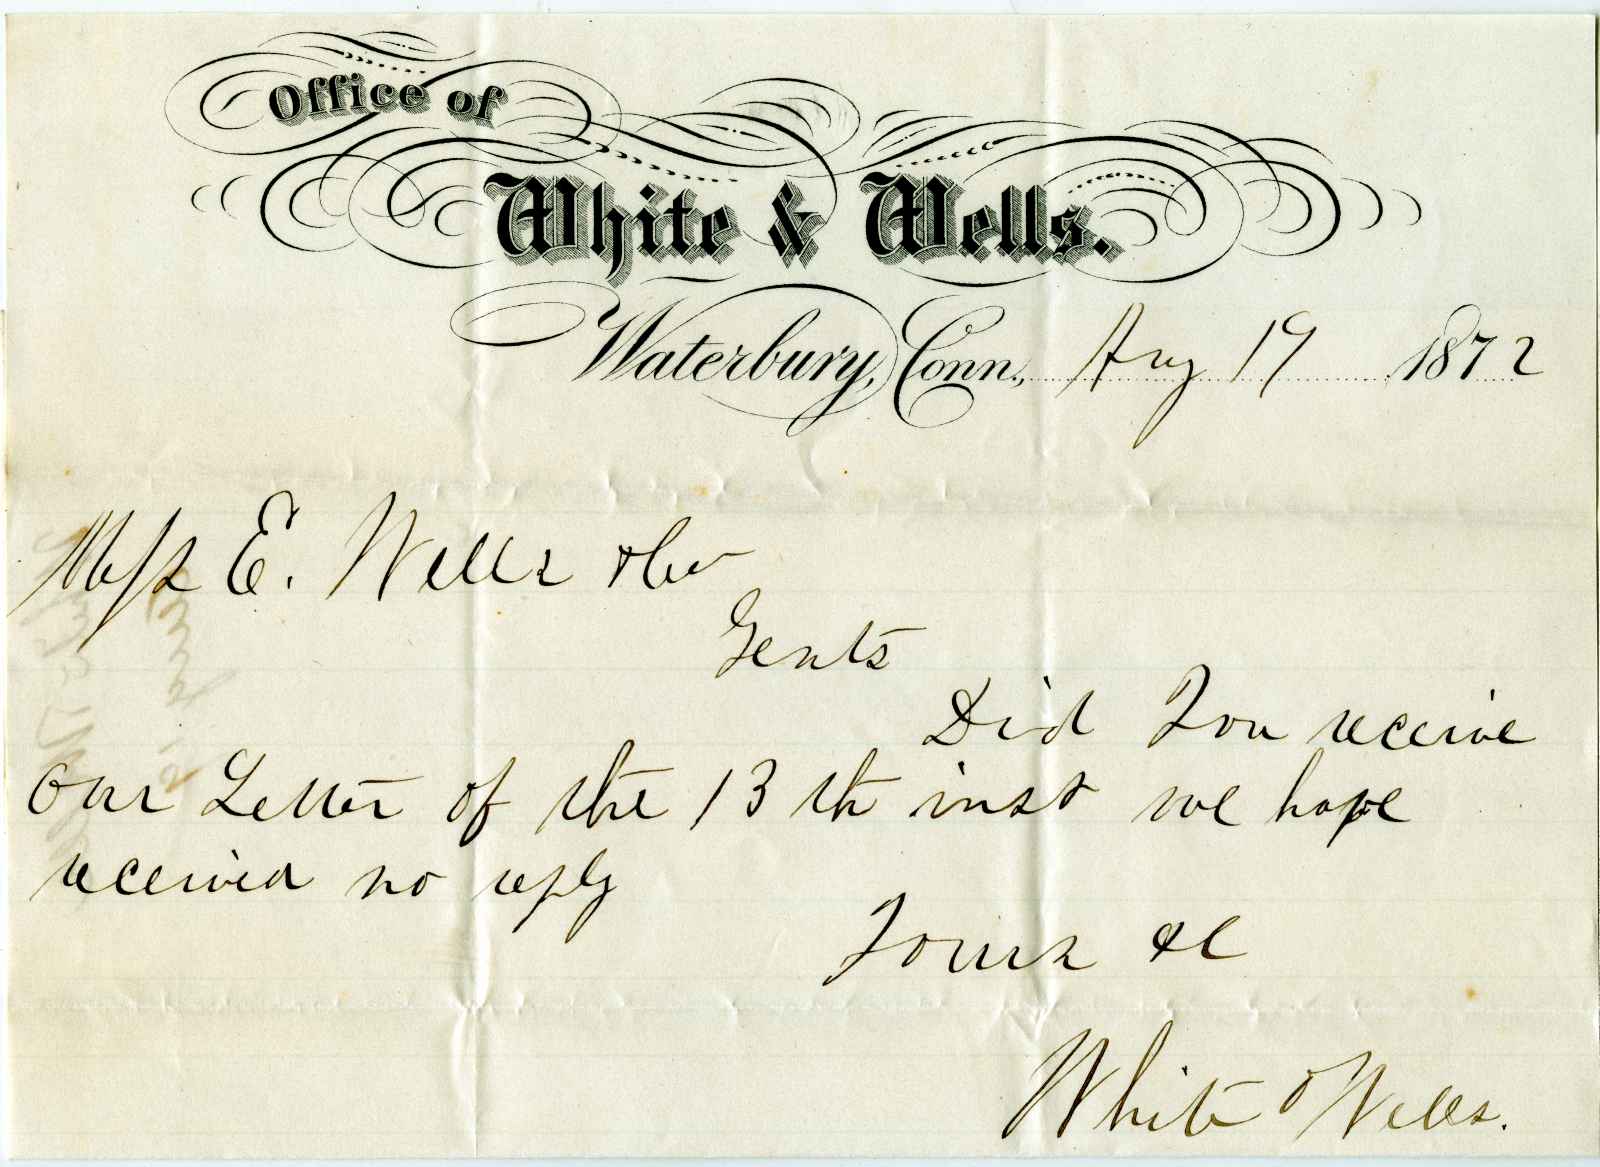 Office of
White & Wells.
Waterbury, Conn., Aug 19 1872
Mess E. Wells & Co
Gents
Did You receive
our Letter of the 13th inst we hape
received no reply
Yours &c
White & Wells.